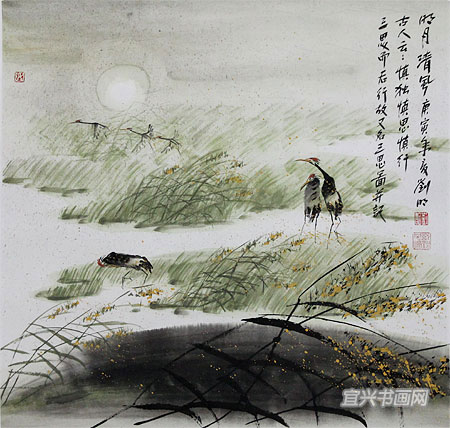 明月清风庚寅年劉明
古人云：慎独慎思慎行
三思而后行故又名三思圖并記
宜兴书画网